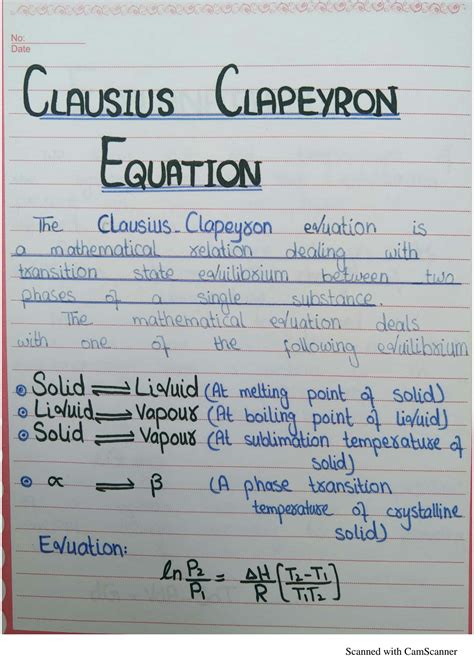 No:
Date
CLAUSIUS CLAPEYRON
EQUATION
The Clausius-Clapeyron equation is
a mathematical relation dealing with
transition state equilibrium between two
phases of a single substance.
The mathematical equation deals
with one of the following equilibrium
Solid ⇌ Liquid (At melting point of solid)
Liquid ⇌ Vapour (At boiling point of liquid)
Solid ⇌ Vapour (At sublimation temperature of
solid)
α ⇌ β (A phase transition
temperature of crystalline
solid)
Equation:
ln P2/P1 = ΔH/R [T2-T1/T1T2]
Scanned with CamScanner